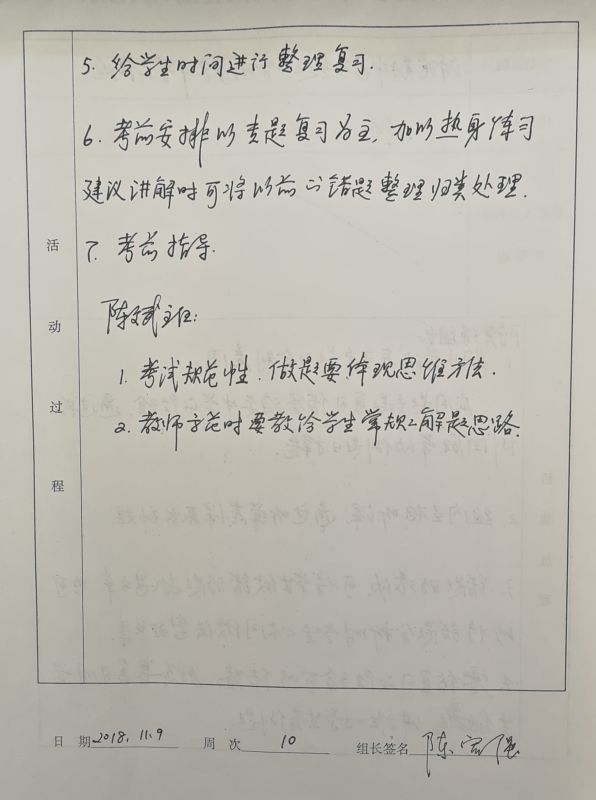 5. 给学生时间进行整理复习.
6. 考前安排以专题复习为主, 加以热身练习
建议讲解时可将以前的错题整理归类处理.
活动过程
7. 考前指导.
陈斌主任:
1. 考试规范性. 做题要体现思维方法.
2. 教师示范时要教给学生常规的解题思路.
日期 2018.11.9 周次 10 组长签名 陈